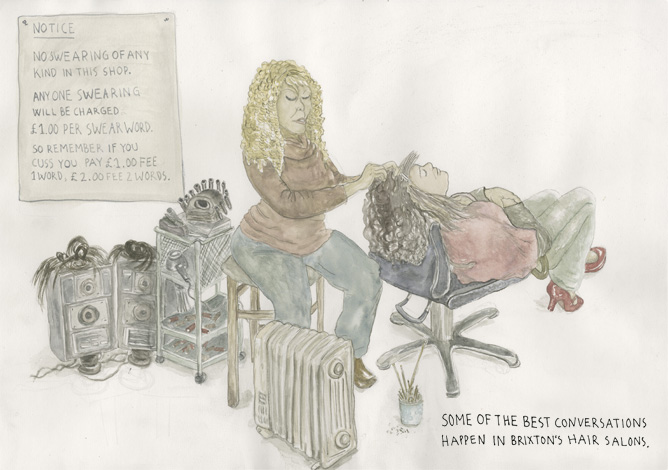 NOTICE
NO SWEARING OF ANY
KIND IN THIS SHOP.
ANYONE SWEARING
WILL BE CHARGED
£1.00 PER SWEAR WORD.
SO REMEMBER IF YOU
CUSS YOU PAY £1.00 FEE
1 WORD, £2.00 FEE 2 WORDS.
SOME OF THE BEST CONVERSATIONS
HAPPEN IN BRIXTON'S HAIR SALONS.